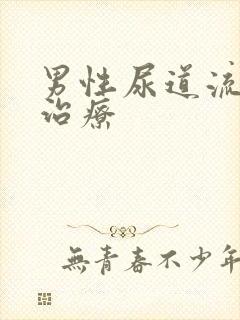 男性尿道流
治療
無青春不少年